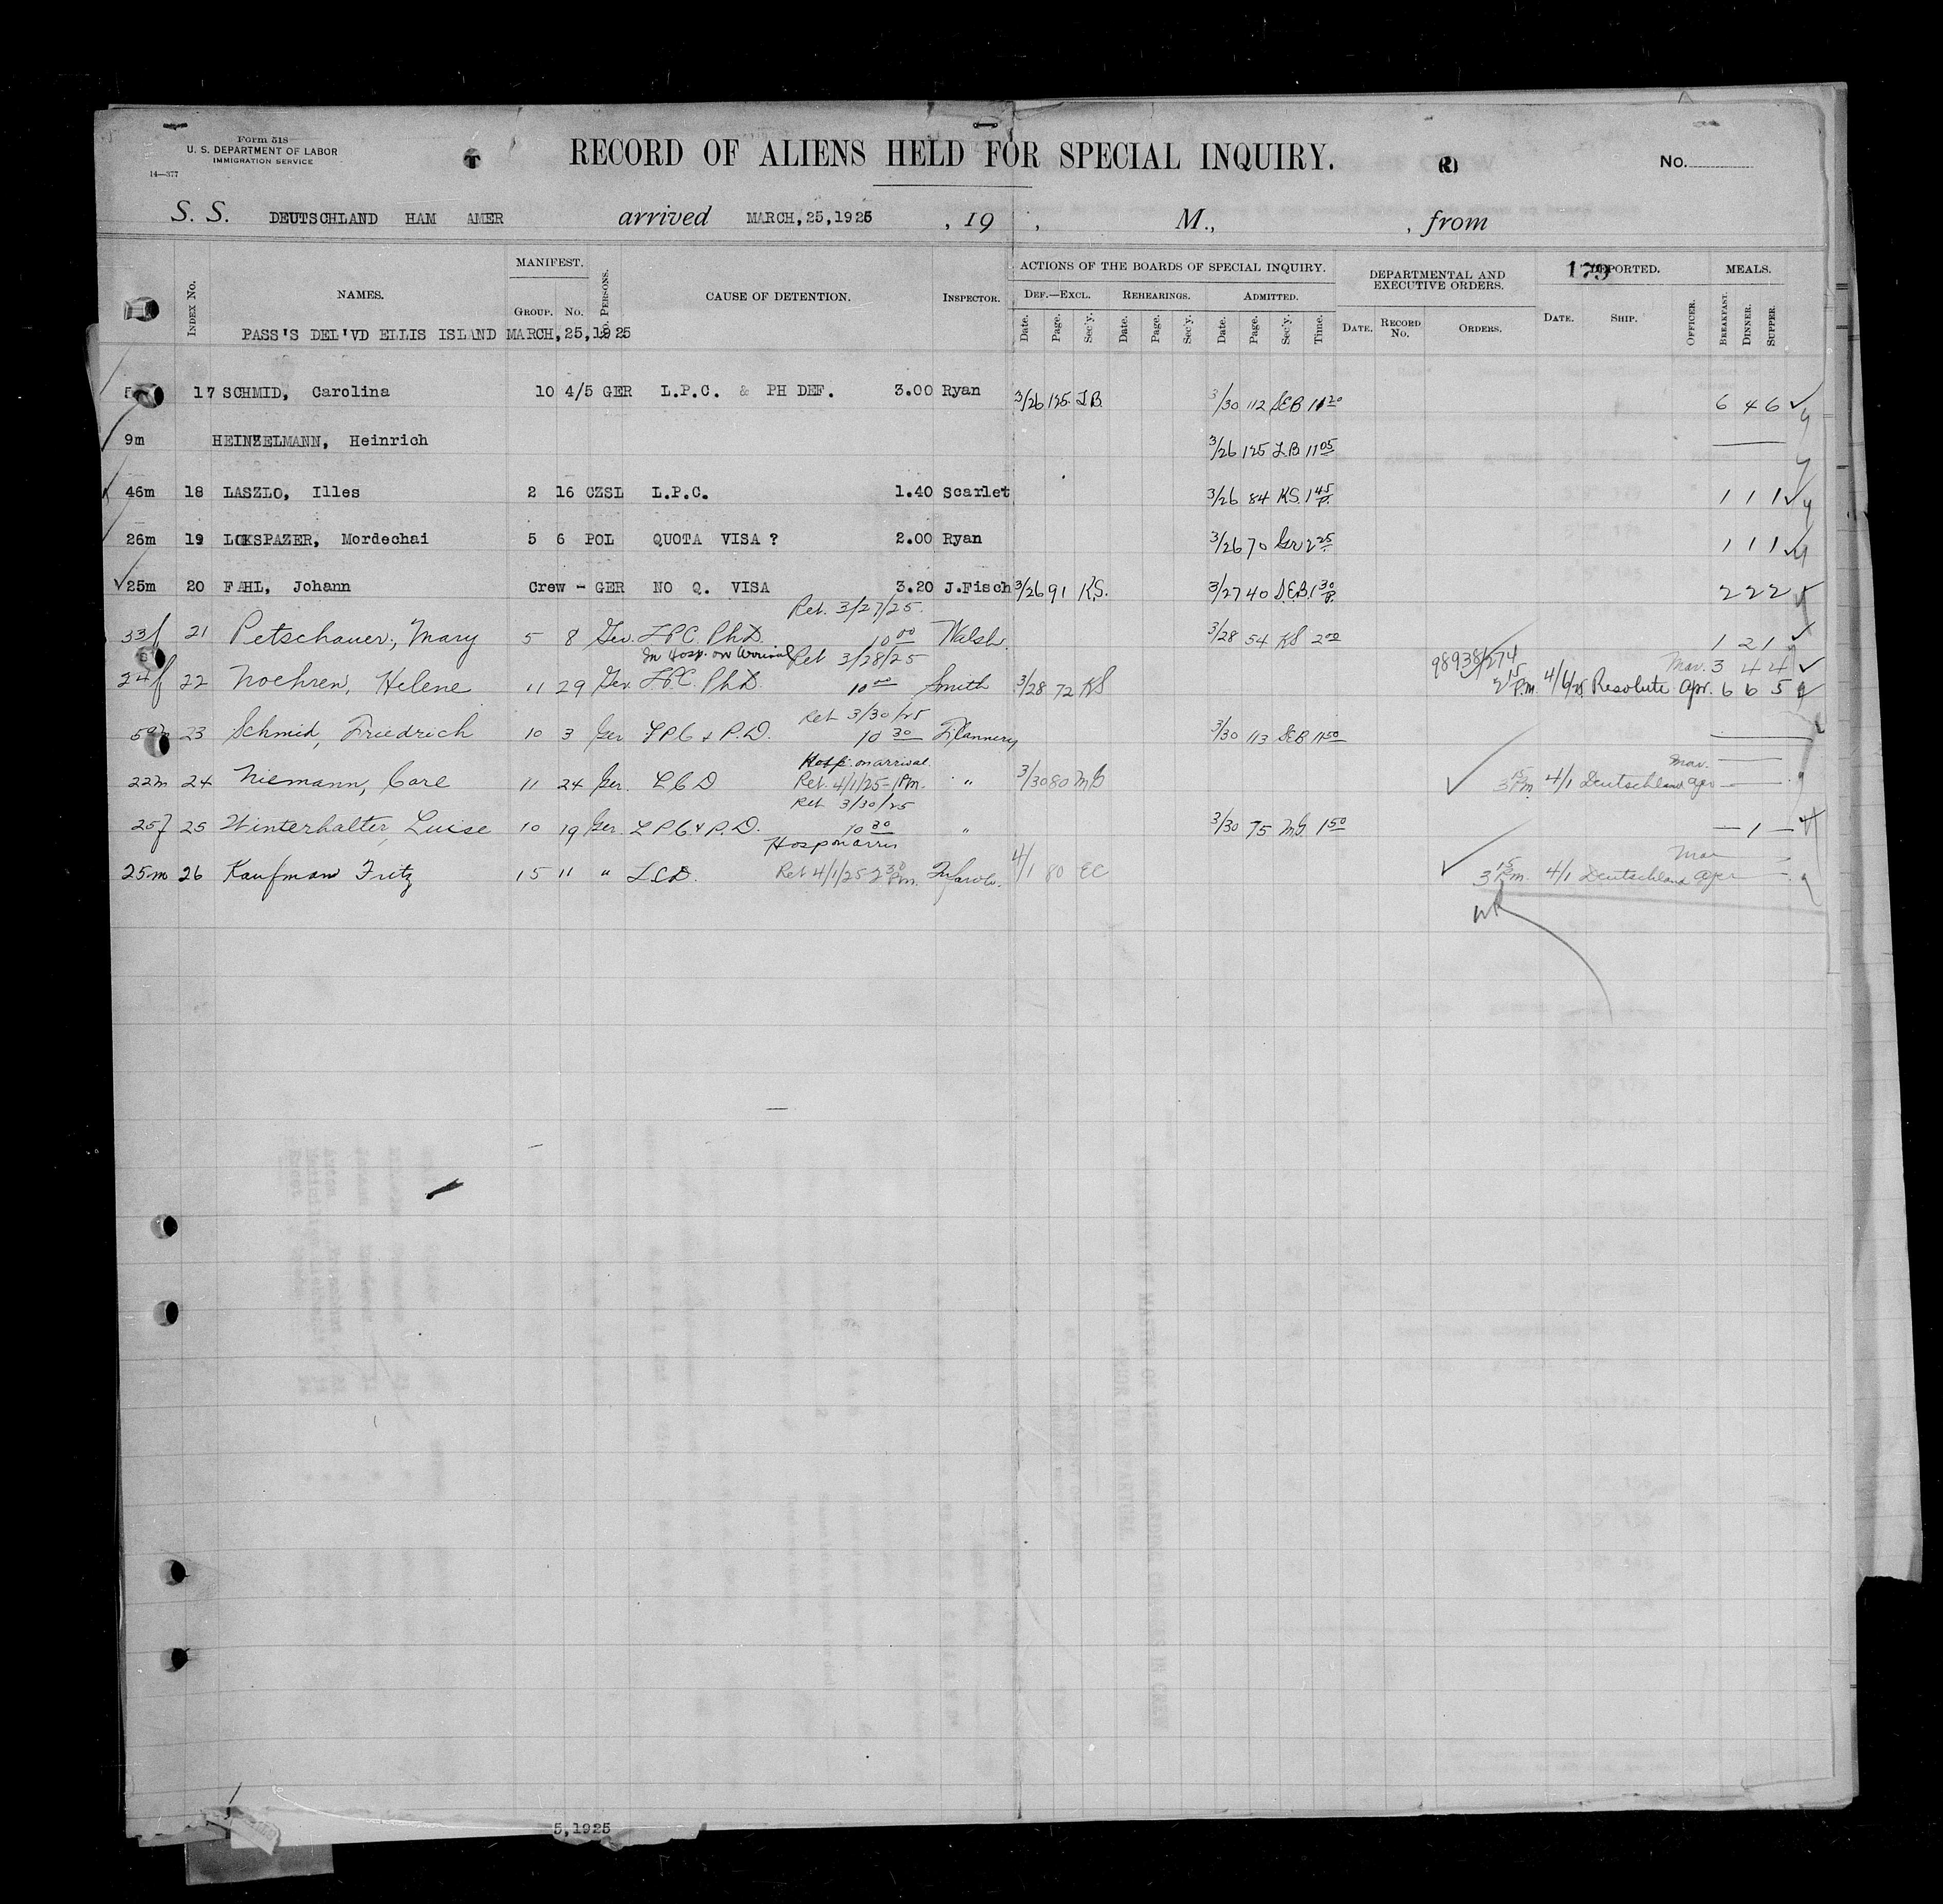 Form 518
U. S. DEPARTMENT OF LABOR
IMMIGRATION SERVICE
14—377
RECORD OF ALIENS HELD FOR SPECIAL INQUIRY.
(R)
No.
S. S. DEUTSCHLAND HAM AMER arrived MARCH,25,1925 , 19 , M., , from
Index No. NAMES. MANIFEST. Group. No. No. Persons. CAUSE OF DETENTION. Inspector. ACTIONS OF THE BOARDS OF SPECIAL INQUIRY. DEPARTMENTAL AND EXECUTIVE ORDERS. 179 DEPORTED. MEALS.
Def.—Excl. Rehearings. Admitted.
Date. Page. Sec'y. Date. Page. Sec'y. Date. Page. Sec'y. Time. Date. Record No. Orders. Date. Ship. Officer. Breakfast. Dinner. Supper.
PASS'S DEL'VD ELLIS ISLAND MARCH,25,1925
17 SCHMID, Carolina 10 4/5 GER L.P.C. & PH DEF. 3.00 Ryan 3/26 125 J.B. 3/30 112 SEB 11 20 6 4 6
9m HEINZELMANN, Heinrich 3/26 125 J.B. 11 05
46m 18 LASZLO, Illes 2 16 CZSL L.P.C. 1.40 Scarlet 3/26 84 KS. 1 45 P. 1 1 1
26m 19 LOKSPAZER, Mordechai 5 6 POL QUOTA VISA ? 2.00 Ryan 3/26 70 2 25 1 1 1
25m 20 FAHL, Johann Crew - GER NO Q. VISA 3.20 J.Fisch 3/26 91 K.S. 3/27 40 S.E.B. 1 30 P. 2 2 2
Ret. 3/27/25
33f 21 Petschauer, Mary 5 8 Ger. LPC. Ph.D. 10 00 Walsh 3/28 54 KS 2 00 1 2 1
In Hosp. on arrival Ret 3/28/25 98938/274 Mar. 3 4 4
24f 22 Noehren, Helene 11 29 Ger. LPC. Ph.D. 10 00 Smith 3/28 72 KS 2 15 P.m. 4/6/25 Resolute Apr. 6 6 5
Ret 3/30/25
59m 23 Schmid, Friedrich 10 3 Ger LPC & P.D. 10 30 Flannery 3/30 113 SEB 11 50
Hosp. on arrival Mar.
22m 24 Niemann, Carl 11 24 Ger. LCD Ret. 4/1/25-1Pm. " 3/30 80 MG 3 15 P.m. 4/1 Deutschland Apr
Ret 3/30/25
25f 25 Winterhalter, Luise 10 19 Ger. LPC & P.D. 10 30 " 3/30 75 MG 1 50 — 1 —
Hosp on arriv
25m 26 Kaufman Fritz 15 11 " LCD. Ret 4/1/25 2 30 Pm. 4/1 80 EC 3 15 P.m. 4/1 Deutschland Apr
Mar
5,1925